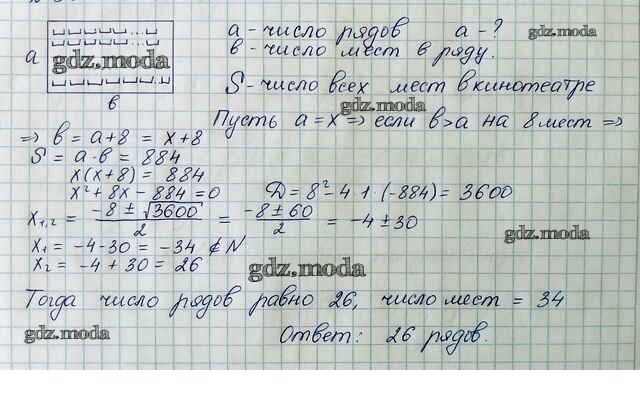 a - число рядов a - ?
gdz.moda
в - число мест в ряду.
a
gdz.moda
S - число всех мест в кинотеатре
в
gdz.moda
Пусть a = x ⇒ если в > a на 8 мест ⇒
⇒ в = a + 8 = x + 8
S = a · в = 884
x(x + 8) = 884
x² + 8x - 884 = 0 D = 8² - 4 · 1 · (-884) = 3600
x₁,₂ = (-8 ± √3600)/2 = (-8 ± 60)/2 = -4 ± 30
gdz.moda
x₁ = -4 - 30 = -34 ∉ N
x₂ = -4 + 30 = 26
gdz.moda
Тогда число рядов равно 26, число мест = 34
gdz.moda
Ответ: 26 рядов.